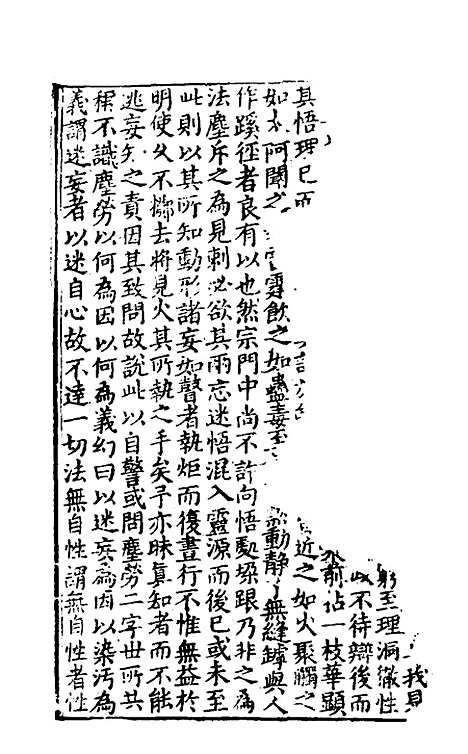 我見
躬至理洞徹性
以不待辯後而
前佔一枝華顯
其悟理已而
近之如火聚觸之
如太阿闢之
雪飲之如蠱毒至
動靜了無縫罅與人
作蹊徑者良有以也然宗門中尚不許向悟處躲跟乃非之為
法塵斥之為見刺必欲其兩忘迷悟混入靈源而後已或未至
此則以其所知動形諸妄如瞽者執炬而復晝行不惟無益於
明使久不擲去將見火其所執之手矣予亦昧真知者而不能
逃妄知之責因其致問故說此以自警或問塵勞二字世所共
稱不識塵勞以何為因以何為義幻曰以迷妄為因以染污為
義謂迷妄者以迷自心故不達一切法無自性謂無自性者性